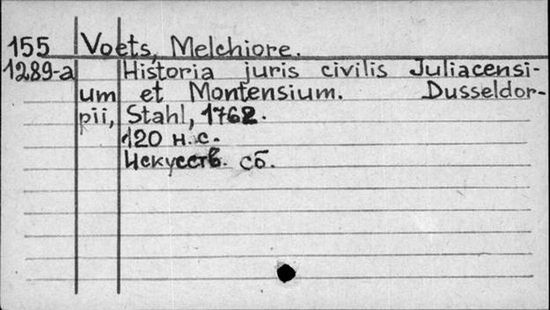 155 Voets, Melchiore.
1289-a Historia juris civilis Juliacensi-
um et Montensium. Dusseldor-
pii, Stahl, 1762.
120 н.с.
Искусств. сб.